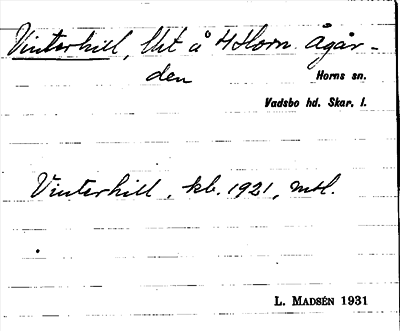 Vinterhill, lht å 4 Horn. Ågår-
den
Horns sn.
Vadsbo hd. Skar. l.
Vinterhill, kb. 1921, mtl.
L. MADSÉN 1931